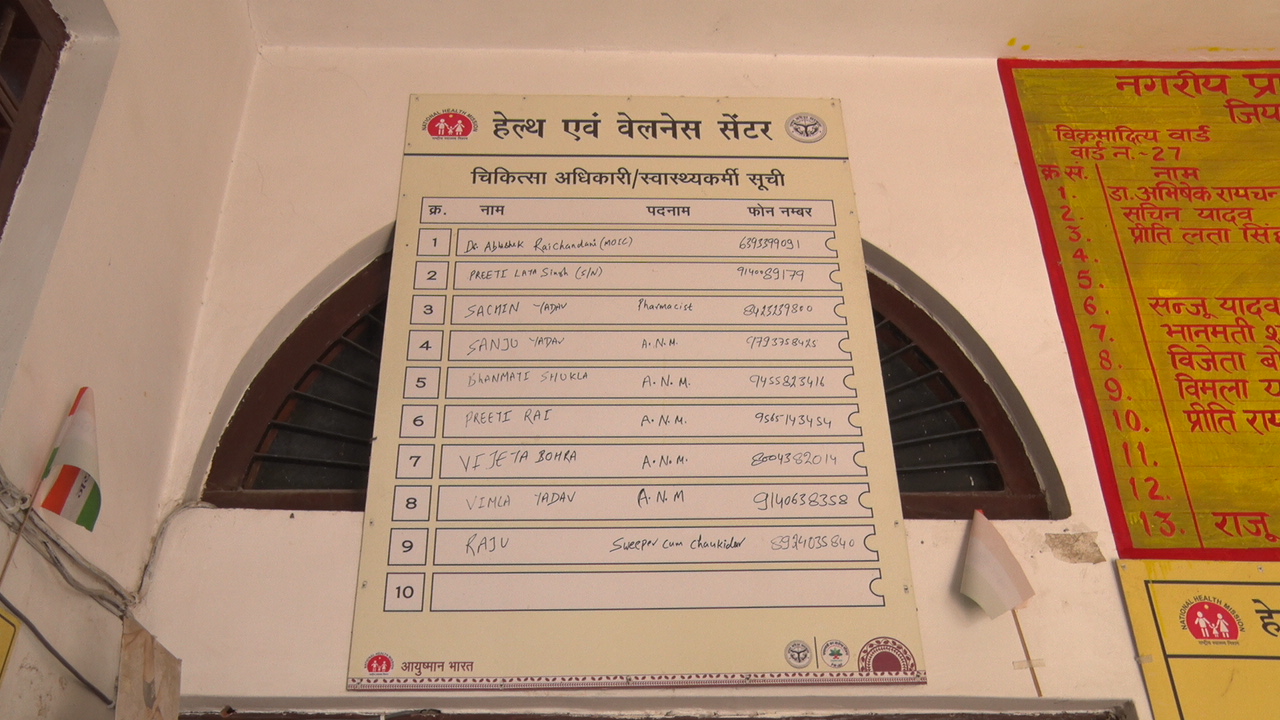 NATIONAL HEALTH MISSION
हेल्थ एवं वेलनेस सेंटर
चिकित्सा अधिकारी/स्वास्थ्यकर्मी सूची
क्र. नाम पदनाम फोन नम्बर
1 Dr. Abhishek Raichandani (MOIC) 6393399091
2 PREETI LATA Singh (S/N) 9140089179
3 SACHIN YADAV Pharmacist 8423239800
4 SANJU YADAV A.N.M. 9793758425
5 BHANMATI SHUKLA A.N.M. 9455823416
6 PREETI RAI A.N.M. 9565143454
7 VIJETA BOHRA A.N.M. 8004382014
8 VIMLA YADAV A.N.M 9140638358
9 RAJU Sweeper cum Chaukider 8924035840
10
आयुष्मान भारत
नगरीय प्र
जिय
विक्रमादित्य वार्ड
वार्ड न.-27
क्र सं. नाम
1. डा.अभिषेक रामचन
2. सचिन यादव
3. प्रीति लता सिंह
4.
5.
6. सन्जू यादव
7. भानमती शु
8. विजेता बो
9. विमला य
10. प्रीति राय
11.
12.
13. राजू
NATIONAL HEALTH MISSION
हे